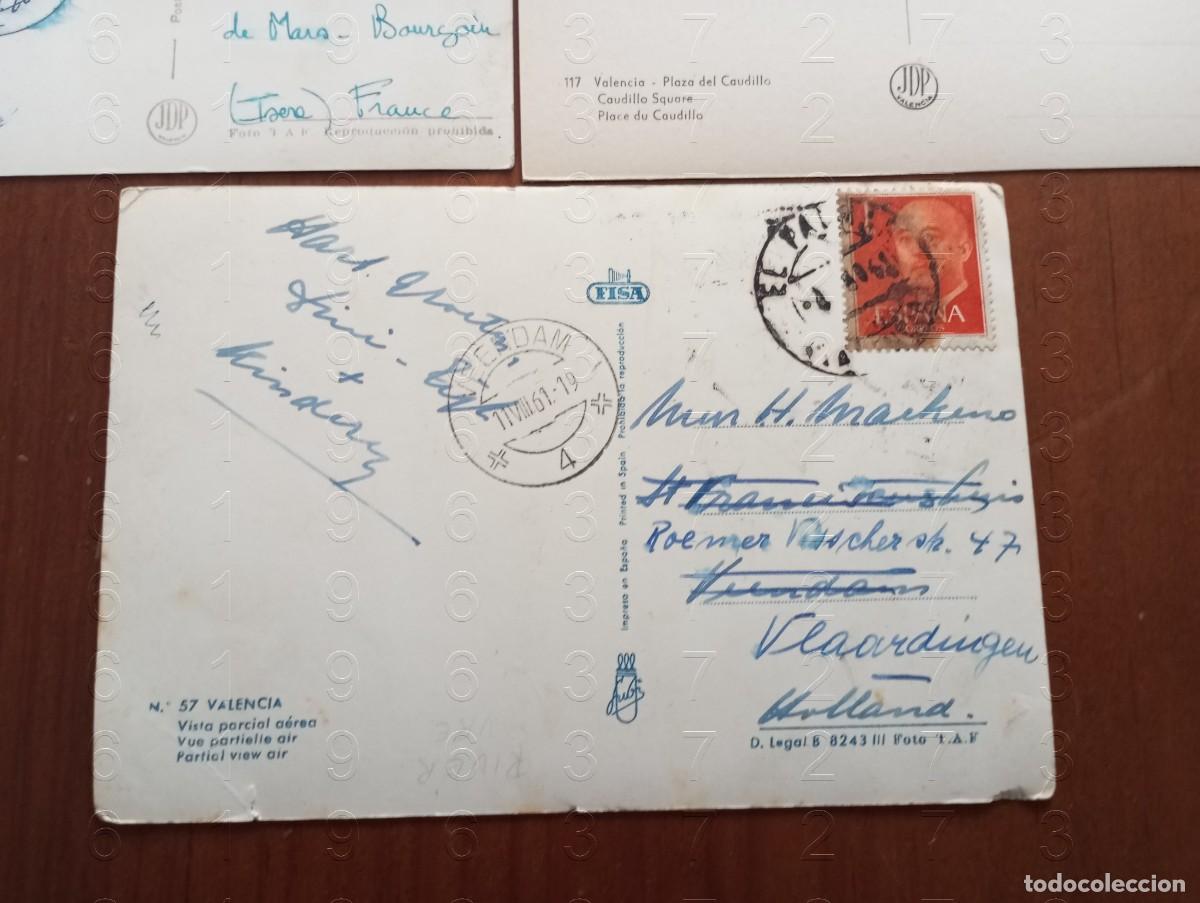 de Mars - Bourgoin
(Isere) France
JDP
VALENCIA
Foto T.A.F. Reproducción prohibida
117 Valencia - Plaza del Caudillo
Caudillo Square
Place du Caudillo
JDP
VALENCIA
Hart.
+
Kinderen
VEENDAM
11.VIII.61.-19
4
FISA
Impreso en España Printed in Spain Prohibida la reproducción
EL
ESPAÑA
CORREOS
H.
St Franciscus
Roemer Visscherstr. 47
Veendam
Vlaardingen
Holland.
N.° 57 VALENCIA
Vista parcial aérea
Vue partielle air
Partial view air
D. Legal B 8243 III Foto T.A.F
todocoleccion